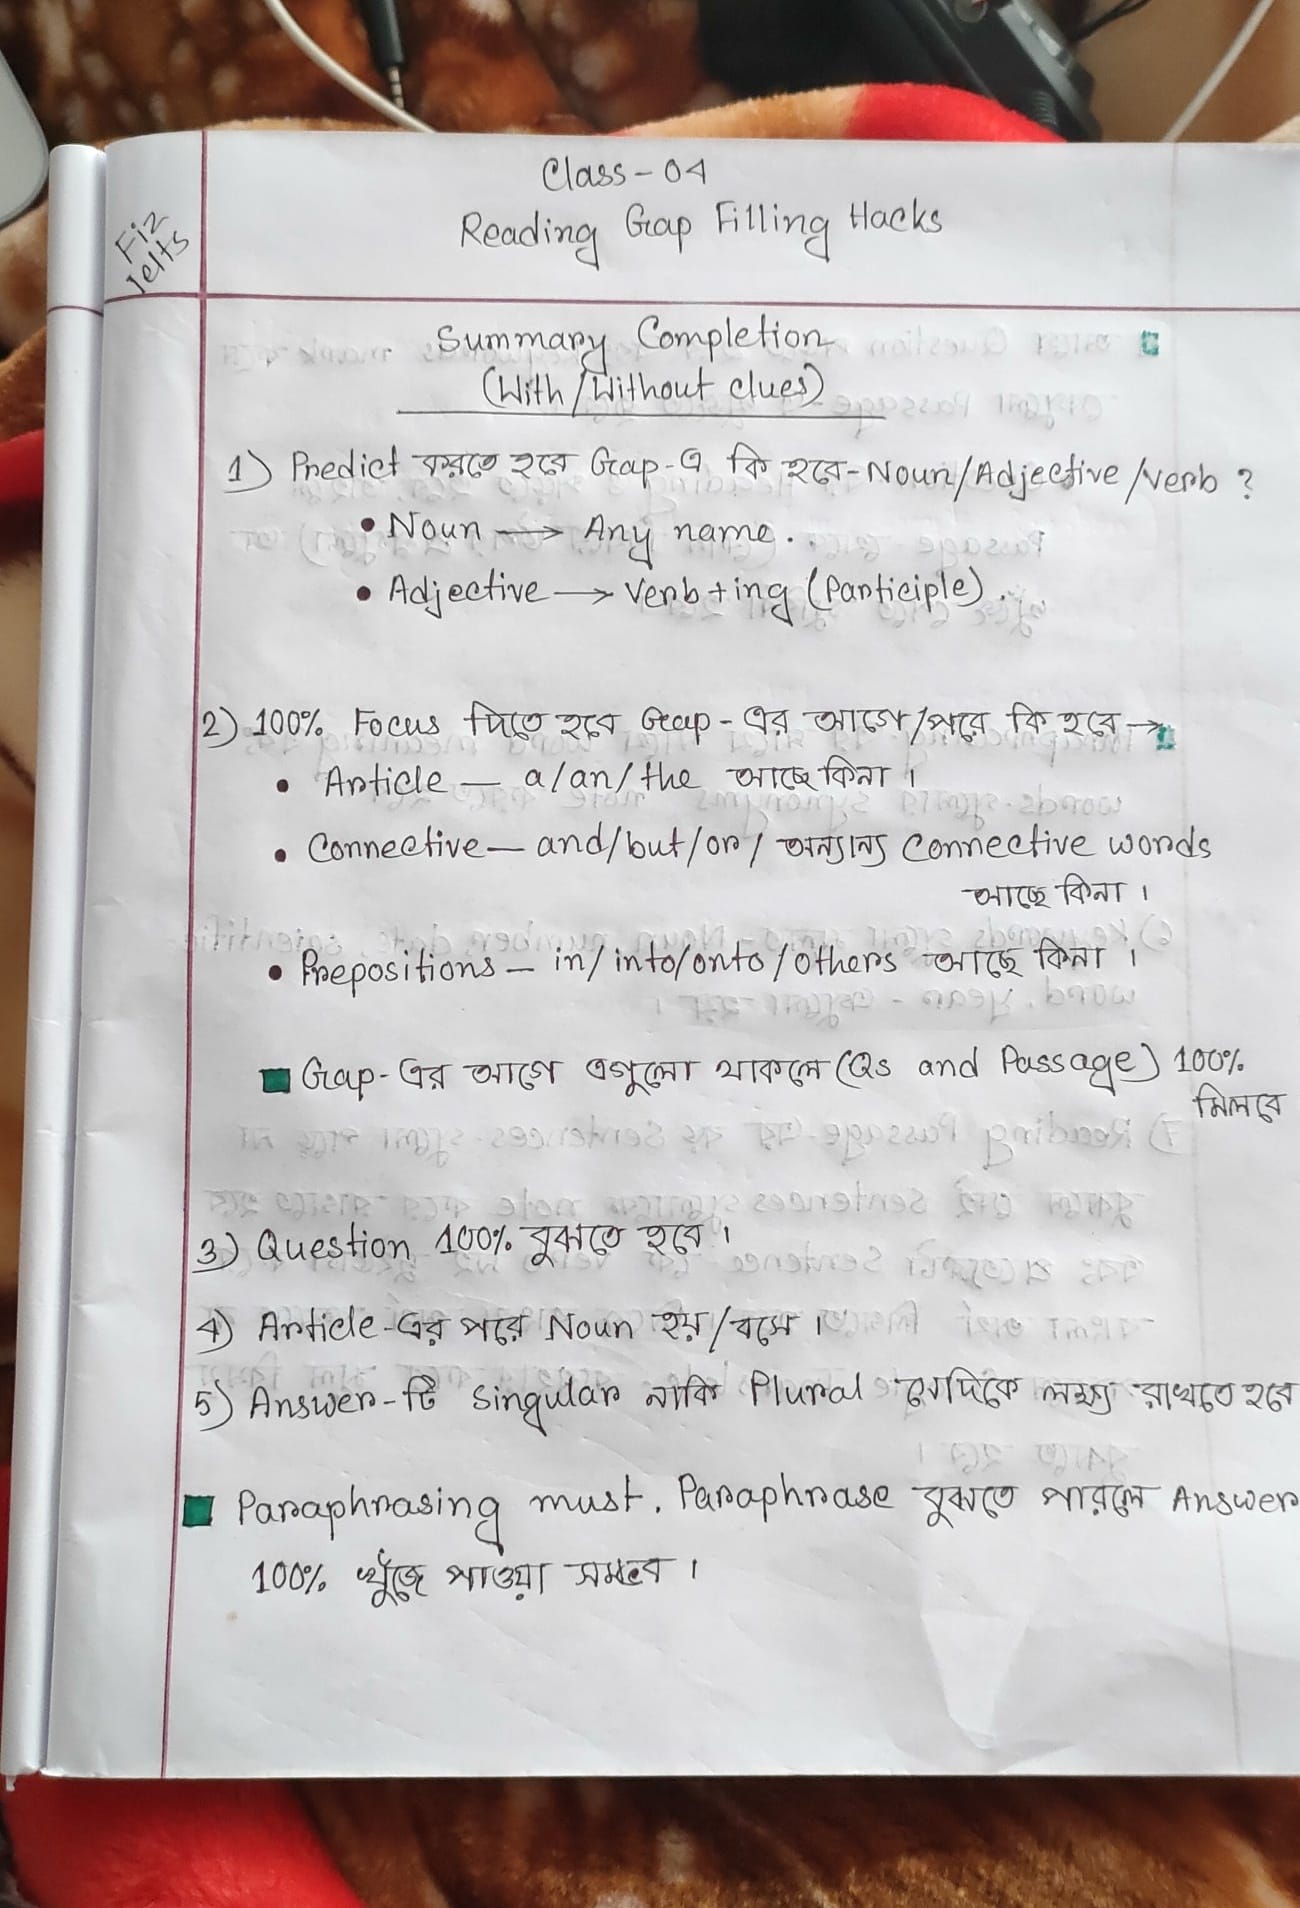 Fiz
Ielts
Class-04
Reading Gap Filling Hacks
Summary Completion
(With/Without clues)
1) Predict করতে হবে Gap-এ কি হবে-Noun/Adjective/verb ?
• Noun → Any name.
• Adjective → Verb+ing (Participle).
2) 100% Focus দিতে হবে Gap-এর আগে/পরে কি হবে →
• Article — a/an/the আছে কিনা ।
• Connective — and/but/or/ অন্যান্য Connective words
আছে কিনা ।
• Prepositions — in/into/onto/others আছে কিনা ।
Gap-এর আগে এগুলো থাকলে (Qs and Passage) 100%
মিলবে
3) Question 100% বুঝতে হবে ।
4) Article-এর পরে Noun হয়/বসে ।
5) Answer-টি Singular নাকি Plural সেদিকে লক্ষ্য রাখতে হবে
Paraphrasing must. Paraphrase বুঝতে পারলে Answer
100% খুঁজে পাওয়া সম্ভব ।